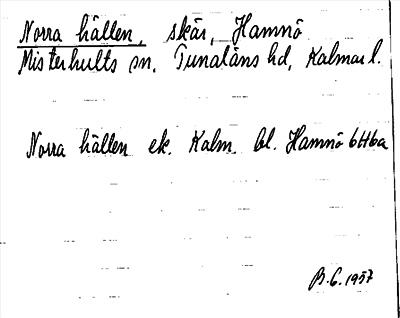 Norra hällen, skär, Hamnö
Misterhults sn, Tunaläns hd, Kalmar l.
Norra hällen ek. Kalm. bl. Hamnö 6H6a
B.G. 1957